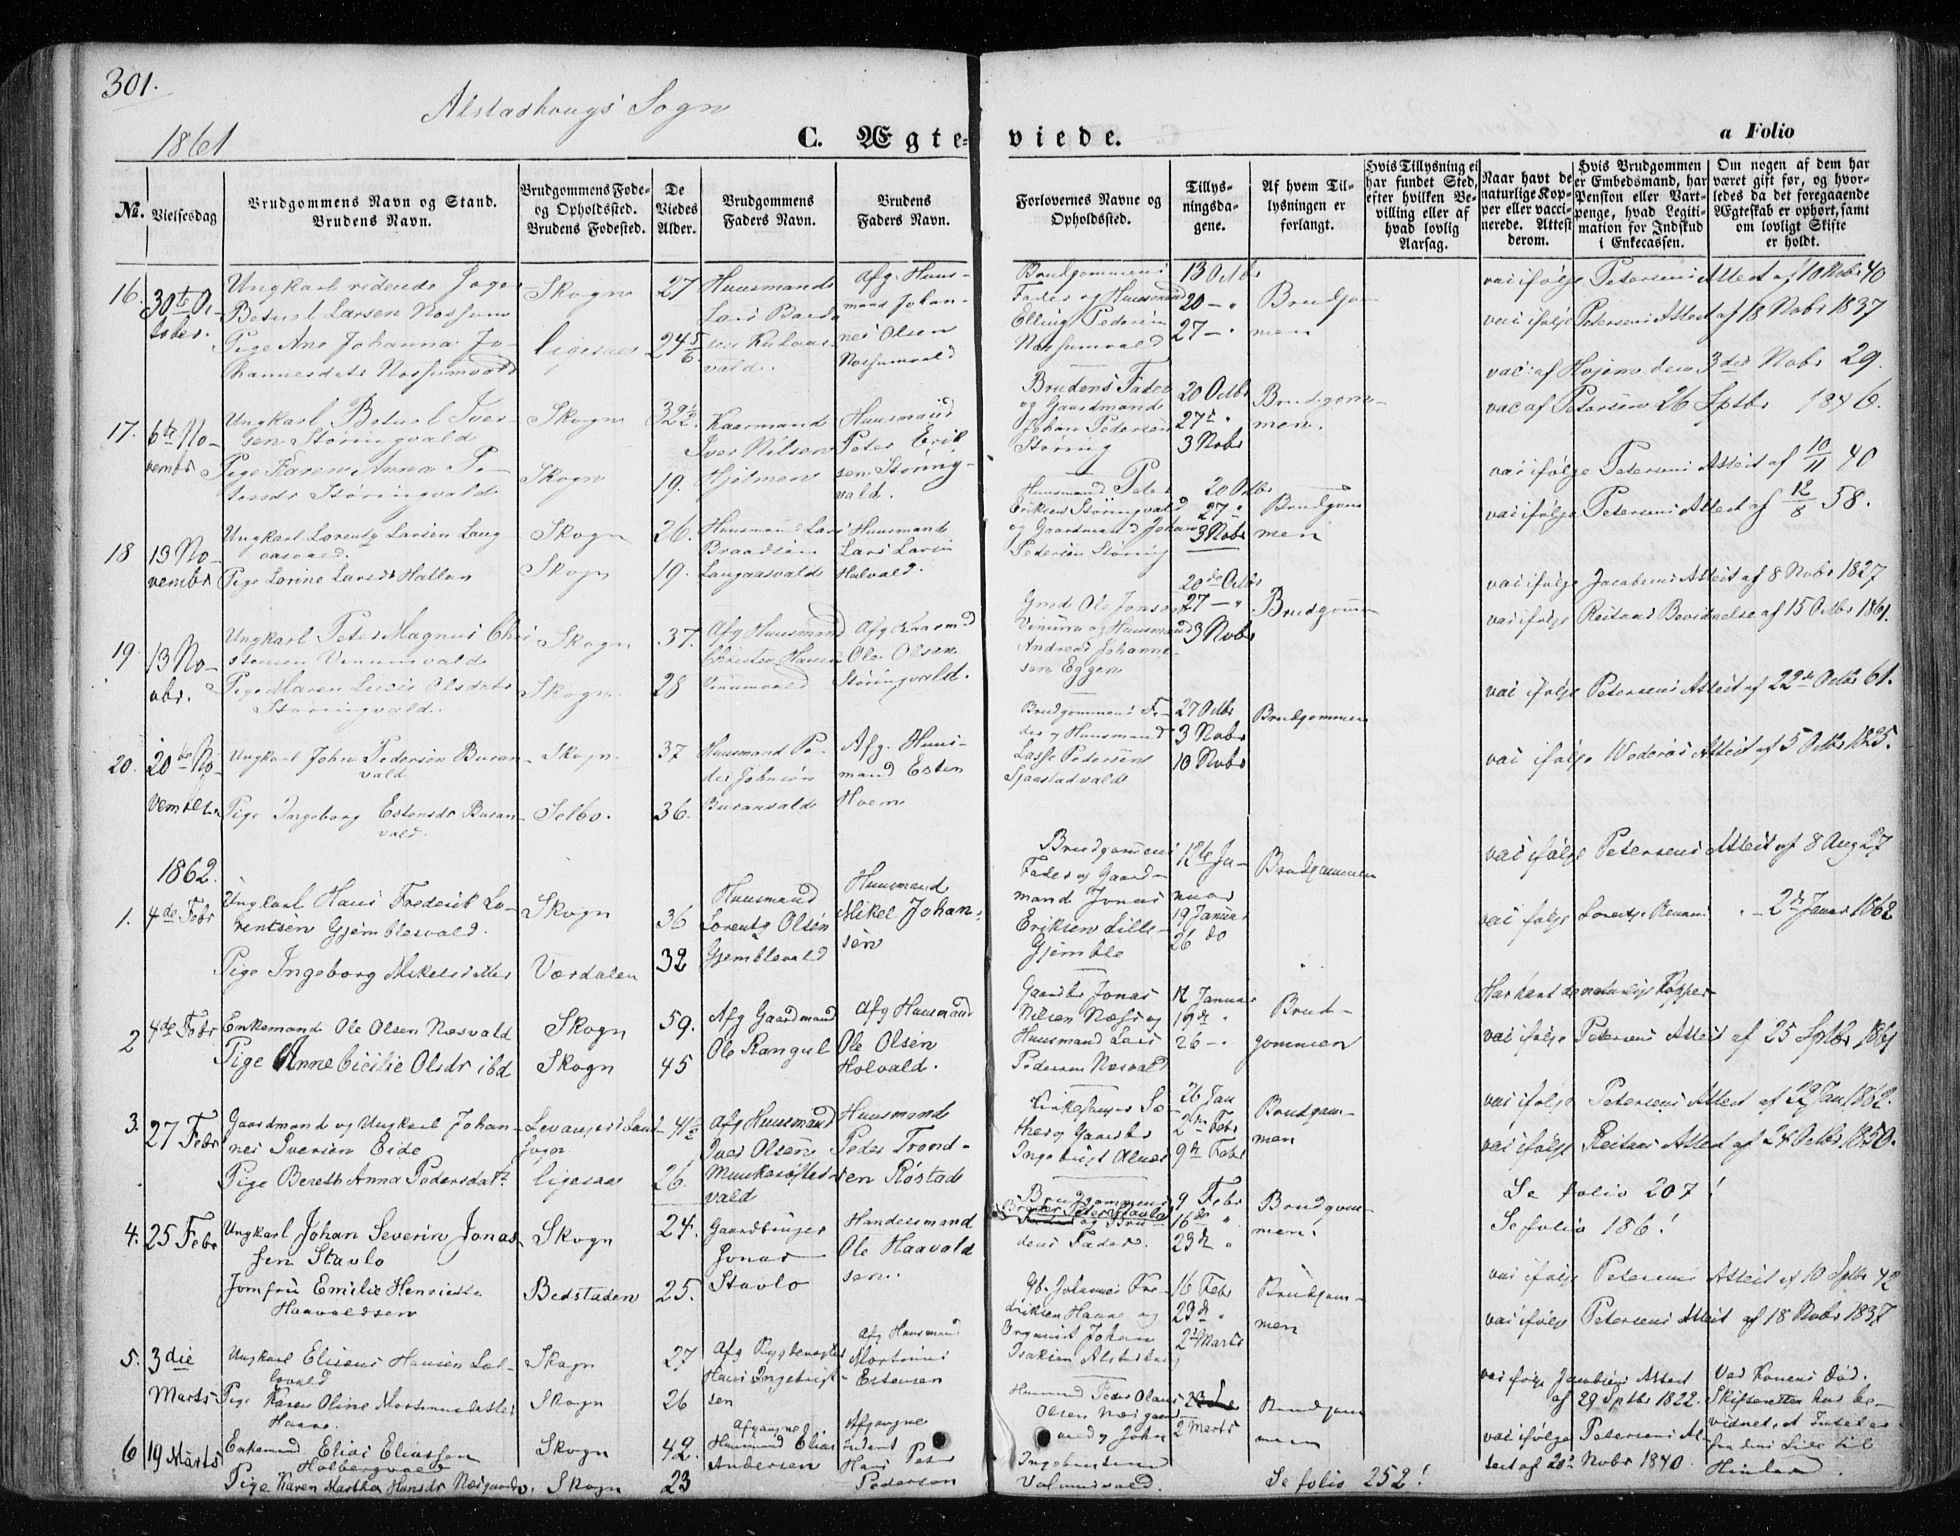 301.
Alstadhougs Sogn
1861
C. Ægteviede.
a Folio
No.
Vielsesdag
Brudgommens Navn og Stand.
Brudens Navn.
Brudgommens Føde-
og Opholdssted.
Brudens Fødested.
De
Viedes
Alder.
Brudgommens
Faders Navn.
Brudens
Faders Navn.
Forlovernes Navne og
Opholdssted.
Tillys-
ningsda-
gene.
Af hvem Til-
lysningen er
forlangt.
Hvis Tillysning ei
har fundet Sted,
efter hvilken Be-
villing eller af
hvad lovlig
Aarsag.
Naar havt de
naturlige Kop-
per eller vacci-
nerede. Attest
derom.
Hvis Brudgommen
er Embedsmand, har
Pension eller Vart-
penge, hvad Legiti-
mation for Indskud
i Enkecassen.
Om nogen af dem har
været gift før, og hvor-
ledes da det foregaaende
Ægteskab er ophørt, samt
om lovligt Skifte
er holdt.
16.
30te Oc-
tober.
Betuel Larsen Nossum
Pige Ane Johanna Jo-
hannesdatr Nossumvald
Skogn
ligesaa
27
24 5/6
Huusmand
Lars
vald.
Afg. Huus-
mand Johan-
nes Olsen
Nossumvald
Brudgommens
Fader og Huusmand
Elling Pedersen
Nossumvald
13 Octbr
20 — "
27 — "
Brudgom-
men
vac ifølge Petersens Attest af 10 Nobr 40
vac ifølge Petersens Attest af 18 Nobr 1837
17.
6te No-
vembr
Ungkarl Betuel Iver-
sen Støringvald
Pige Karen Anna Pe-
tersdr Støringvald
Skogn
Skogn
32 1/2
19.
Kaarmand
Iver Nilsen
Hjelmen
Huusmand
Peter Erik
sen Støring-
vald.
Brudens Fader
og Gaardmand
Johan Pedersen
Støring
20 Octbr
27de "
3 Nobr
Brudgom-
men.
vac: af Hojem den 3die Nobr 29.
vac af Petersen 26 Sptbr 1846.
18
13 No-
vembr
Ungkarl Lorentz Larsen Lang-
aasvald.
Pige Lorine Larsdr Hallan
Skogn
Skogn
26.
19.
Huusmand Lars
Braadsen
Langaasvald
Huusmand
Lars Larsen
Holvald.
Huusmand Peter
Eriksen Støringvald
og Gaardmand Johan
Pedersen Støring
20 Octbr
27 "
3 Nobr
Brudgom
men
vac ifølge Petersens Attest af 10/11 40
vac ifølge Petersens Attest af 12/8 58.
19.
13 No-
vbr.
Ungkarl Peter Magnus Chri
stensen Vinumvald
Pige Maren Lucie Olsdatr
Støringvald.
Skogn
Skogn
37.
28
Afg Huusmand
Christen Hansen
Vinumvald
Afg Kaarmd
Ole Olsen
Støringvald.
Gmd Ole Jonsen
Vinum og Huusmand
Andreas Johanne-
sen Eggen
20de Octbr
27 — "
3 Nobr
Brudgom-
vac ifølge Jacobsens Attest af 8 Nobr 1827
vac ifølge Reitans Bevidnelse af 15 Octbr 1861.
20.
20de No-
vember
Ungkarl Johan Pedersen Buran-
vald
Pige Ingeborg Estensdr Buran-
vald.
Skogn.
Selbo.
37
36.
Huusmand Pe-
der Johnsen
Buranvald
Afg. Huus-
mand Esten
Hoem
Brudgommens Fa-
der og Huusmand
Lasse Pedersen
Sjaastadvald
27 Octbr
3 Nobr
10 Nobr
Brudgommen
vac ifølge Petersens Attest af 22de Octbr 61.
vac ifølge Wederøs Attest af 5 Octbr 1825.
1862.
1.
4de Febr
Ungkarl Hans Frederik Lo-
rentsen Gjemblesvald.
Pige Ingeborg Mikelsdatter
Skogn
Værdalen
36
32
Huusmand
Lorentz Olsen
Gjemblevald
Huusmand
Mikel Johan-
sen
Brudgommens
Fader og Gaard-
mand Jonas
Eriksen Lille-
Gjemble
12te Ja-
nuar
19 Januar
26 do
Brudgommen
vac ifølge Petersens Attest af 8 Aug 27
vac ifølge 2de Januar 1862
2
4de Febr
Enkemand Ole Olsen Næsvald
Pige Anne Cicilie Olsdr ibd
Skogn
Skogn
59.
45
Afg Gaardmand
Ole Rangul
Afg Huusmand
Ole Olsen
Holvald.
Gaardbr Jonas
Nilsen Næss og
Huusmand Lars
Pedersen Næsvald
12 Januar
19de "
26 — "
Brud-
gommen
Har havt de naturlige Kopper
vac ifølge Petersens Attest af 25 Sptbr 1861
3.
27 Febr
Gaardmand og Ungkarl Johan-
nes Iversen Eide
Pige Bereth Anna Pedersdatr
Levangers Land-
sogn
ligesaa
41 1/2
26.
Afg Huusmand
Iver Olsen
Munkerøftes-
vald
Huusmand
Peder Trond-
sen Røstad
Kirkesanger Sæ-
ther og Gaardbr
Ingebrigt Alnæs
26 Jan
2den Febr
9de Febr
Brudgom-
men
vac ifølge Petersens Attest af 22 Jan 1862.
vac ifølge Reitans Attest af 24 Octbr 1850.
4.
25 Febr
Ungkarl Johan Severin Jonas-
sen Stavlo
Jomfru Emilie Henriette
Haavaldsen
Skogn
Bedstaden
24.
25.
Gaardbruger
Jonas
Stavlo
Handelsmand
Ole Haavald
sen.
Brudgommens
Broder Peter Stavlo
Fader og Bru-
dens Fader.
9 Febr
16de "
23de "
Brudgom-
men.
Se folio 207!
Se folio 186!
5.
3die
Marts
Ungkarl Elisæus Hansen
Pige Karen Oline Mortinusdatter
Haave.
Skogn
Skogn
27
26
Afg Rygtevogter
Hans Ingebrigt-
sen
Afg Huusmand
Mortinus
Estensen
Gb. Johannes Fre-
driksen Haave og
Organist Johan
Isaksen Alstadhaug
16 Febr
23de "
2de Marts
Brudgom-
men
vac ifølge Petersens Attest af 10 Sptbr 42
vac ifølge Petersens Attest af 18 Nobr 1837
6
19 Marts
Enkemand Elias Eliassen
Holbergvald
Pige Karen Martha Hansdr Næsgaard
Skogn
Skogn
42.
23
Afgangne
Huusmand Elias
Andersen
Afgangne
Inderst
Hans Peter
Pedersen
Huusmand Peder Olaus
Olsen Næsgaard-
vald og John
Ingebrigtsen
23
2 Marts
Brudgom
men
vac ifølge Jacobsens Attest
af 29 Sptbr 1822.
vac ifølge Petersens At-
test af 20de Nobr 1840.
Ved Konens Død.
Skifteretten har be-
vidnet, at Intet er
fra dens Side til
Hinder.
Se folio 252!